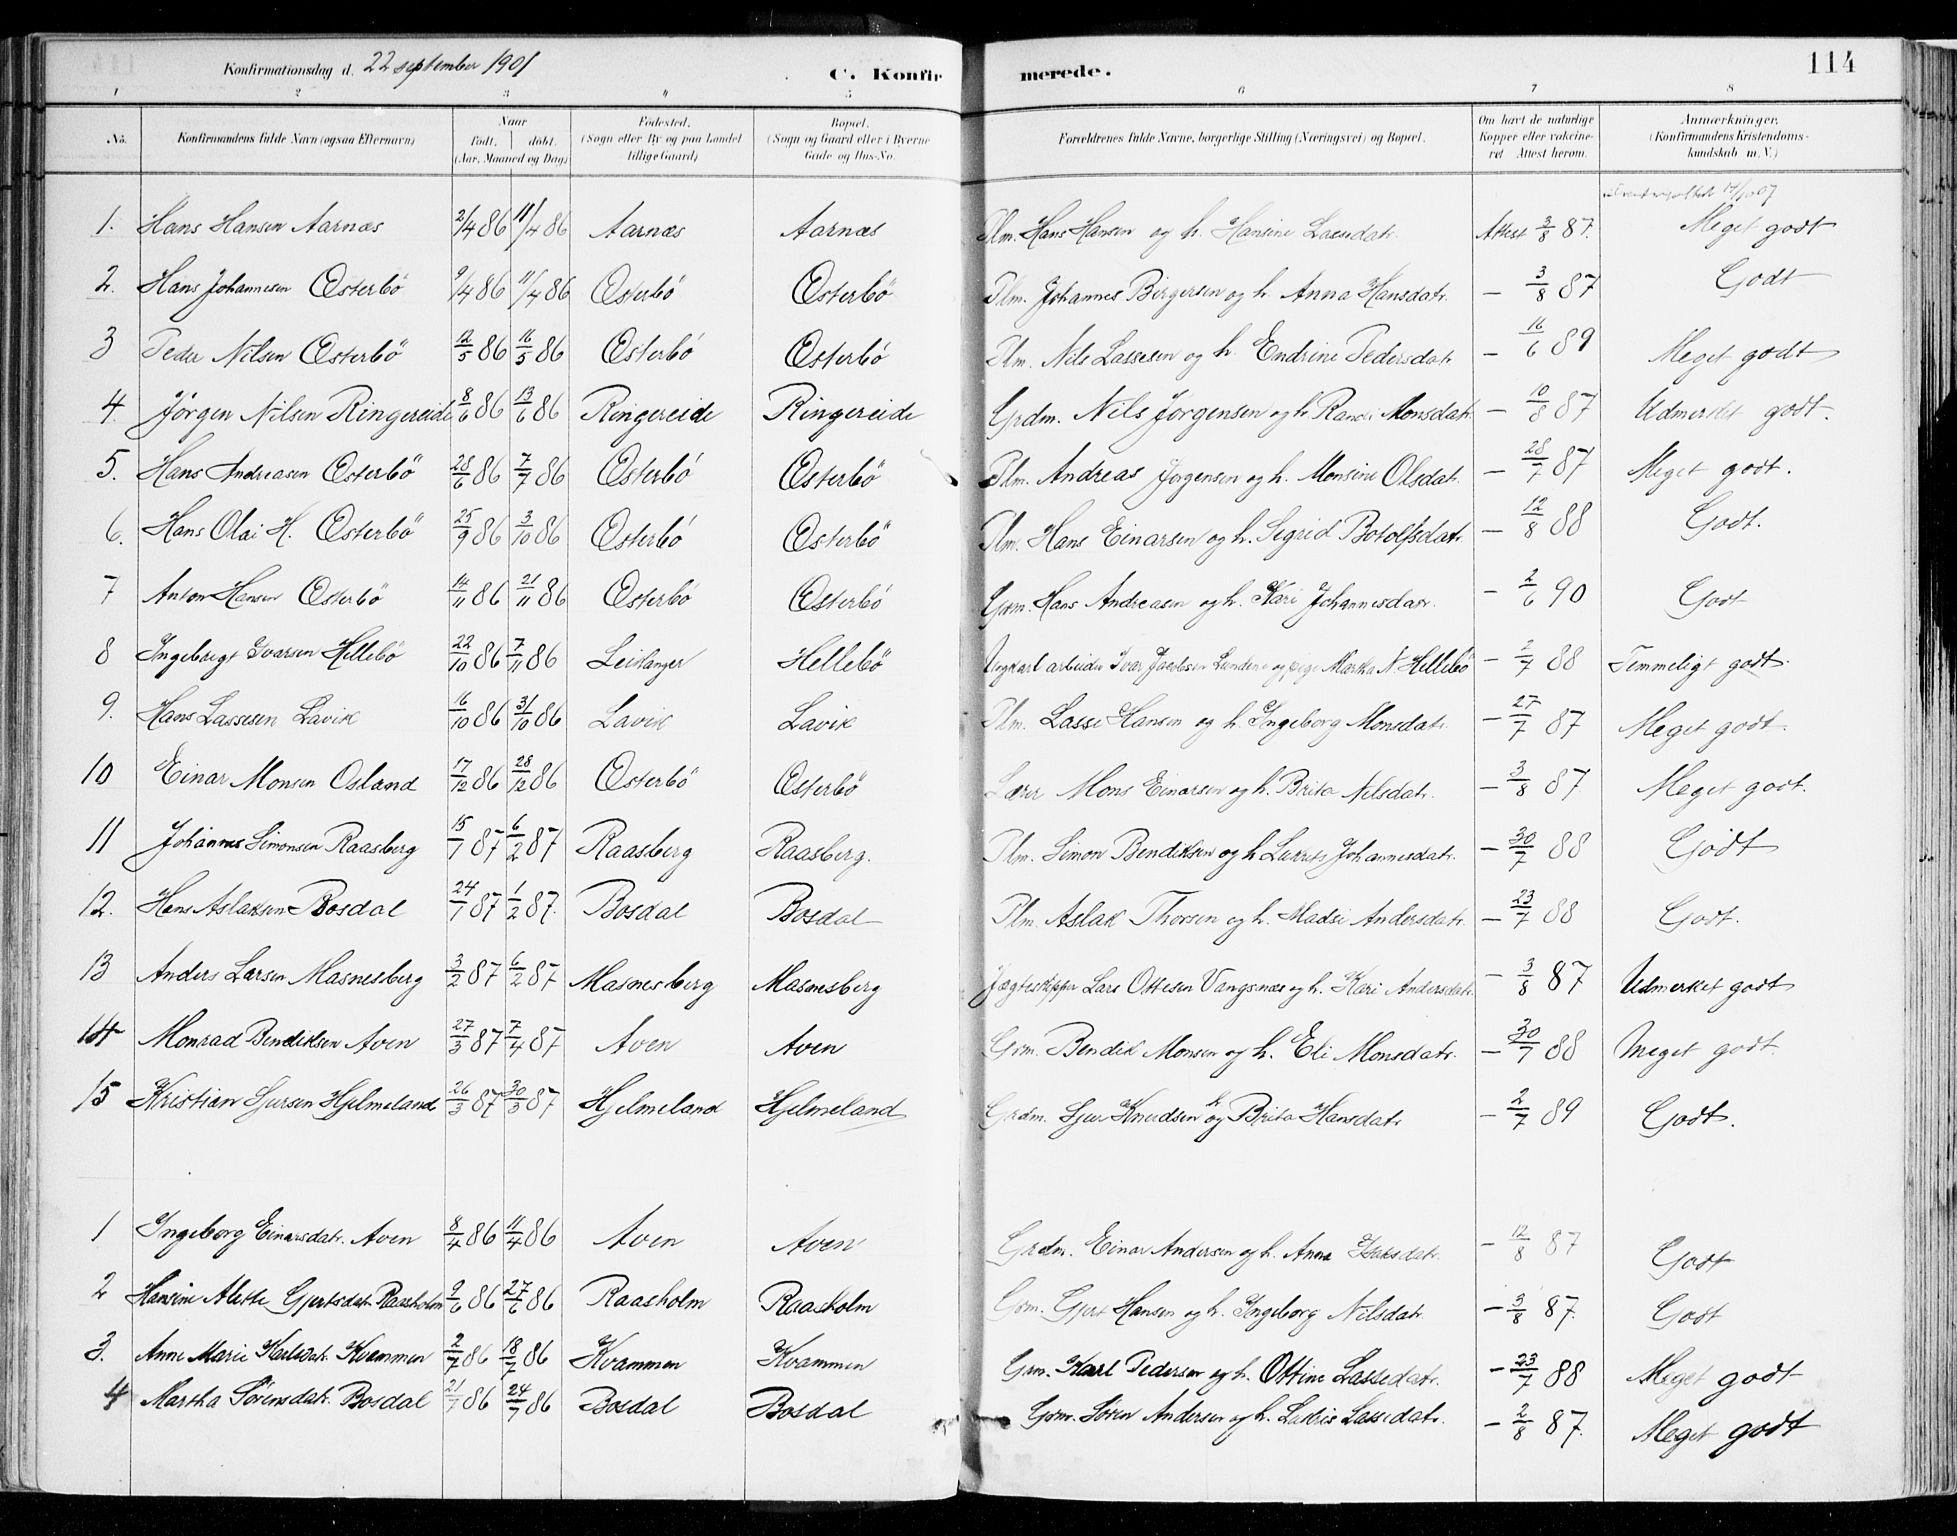 114
Konfirmationsdag d. 22 september 1901 C. Konfirmerede.
1 2 3 4 5 6 7 8
No. Konfirmandens fulde Navn (ogsaa Efternavn) Naar født. døbt. (Aar, Maaned og Dag) Fødested. (Sogn eller By og paa Landet tillige Gaard) Bopæl. (Sogn og Gaard eller i Byerne Gade og Hus-No. Forældrenes fulde Navne, borgerlige Stilling (Næringsvei) og Bopæl. Om havt de naturlige Kopper eller vakcineret Attest herom. Anmærkninger. (Konfirmandens Kristendomskundskab m.V.)
1. Hans Hansen Aarnæs 2/4 86 11/4 86 Aarnæs Aarnæs Plm. Hans Hansen og h. Hansine Lassedatr. Attest 3/8 87. Meget godt
2. Hans Johannesen Østerbö 9/4 86 11/4 86 Østerbö Østerbö Plm. Johannes Birgersen og h. Anna Hansdatr. – 3/8 87 Godt
3 Peder Nilsen Østerbö 12/5 86 16/5 86 Østerbö Østerbö Plm. Nils Lassesen og h. Endrine Pedersdatr – 16/6 89 Meget godt
4. Jörgen Nilsen Ringereide 8/6 86 13/6 86 Ringereide Ringereide Grdm. Nils Jörgensen og h. Randi Monsdatr – 10/8 87 Udmerket godt.
5. Hans Andreasen Østerbö 28/6 86 7/7 86 Østerbö Østerbö Plm. Andreas Jörgensen og h. Monsine Olsdatr. – 28/7 87 Meget godt.
6. Hans Olai H. Østerbö 25/9 86 3/10 86 Østerbö Østerbö Plm. Hans Einarsen og h. Sigrid Botolfsdatr – 12/8 88 Godt.
7 Anton Hansen Østerbö 14/11 86 21/11 86 Østerbö Østerbö Grm. Hans Andreasen og h. Kari Johannesdatr. – 2/6 90 Godt
8 Ingebrigt Ivarsen Hellebö 22/10 86 7/11 86 Leikanger Hellebö Ungkarl arbeider Ivar Jacobsen Lundene og pige Martha N. Hellebö – 2/7 88 Temmeligt godt.
9. Hans Lassesen Lavik 16/10 86 31/10 86 Lavik Lavik Plm. Lasse Hansen og h. Ingeborg Monsdatr. – 27/7 87 Meget godt.
10 Einar Monsen Osland 17/12 86 28/12 86 Østerbö Østerbö Lærer Mons Einarsen og h. Brita Nilsdatr. – 3/8 87 Meget godt.
11 Johannes Simonsen Raasberg 15/1 87 6/2 87 Raasberg Raasberg. Plm. Simon Bendiksen og h Lukris Johannesdatr. – 30/7 88 Godt
12. Hans Aslaksen Bosdal 24/1 87 1/2 87. Bosdal Bosdal Plm. Aslak Thorsen og h. Madsi Andersdatr. – 23/7 88 Godt.
13 Anders Larsen Masnesberg 3/2 87 6/2 87 Masnesberg Masnesberg Jægteskipper Lars Ottesen Vangsnæs og h. Kari Andersdatr. – 3/8 87 Udmerket godt
14 Monrad Bendiksen Aven 27/3 87 7/4 87 Aven Aven Grm. Bendik Monsen og h. Eli Monsdatr. – 30/7 88 Meget godt.
15 Kristian Sjursen Hjelmeland 26/3 87 30/3 87 Hjelmeland Hjelmeland Grdm. Sjur Knudsen og h. Brita Hansdatr – 2/7 89 Godt.
1 Ingeborg Einarsdatr. Aven 8/4 86 11/4 86 Aven Aven Grdm. Einar Andersen og h. Anna – 12/8 87 Godt
2 Hansine Alette Gjertsdatr Raasholm 9/6 86 27/6 86 Raasholm Raasholm Grm. Gjert Hansen og h. Ingeborg Nilsdatr. – 3/8 87. Godt
3. Anne Marie Karlsdatr. Kvammen 2/7 86 18/7 86 Kvammen Kvammen Grm. Karl Pedersen og h. Ottine Lassedatr. – 23/7 88 Meget godt
4 Martha Sörensdatr. Bosdal 21/7 86 24/7 86 Bosdal Bosdal Grm. Sören Andersen og h. Lukris Lassedatr. – 2/8 87. Meget godt